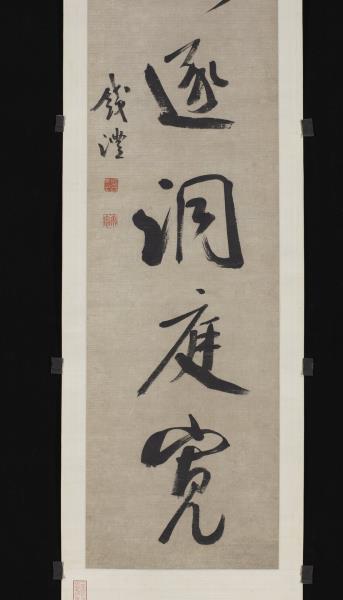 逐洞庭寬
錢灃